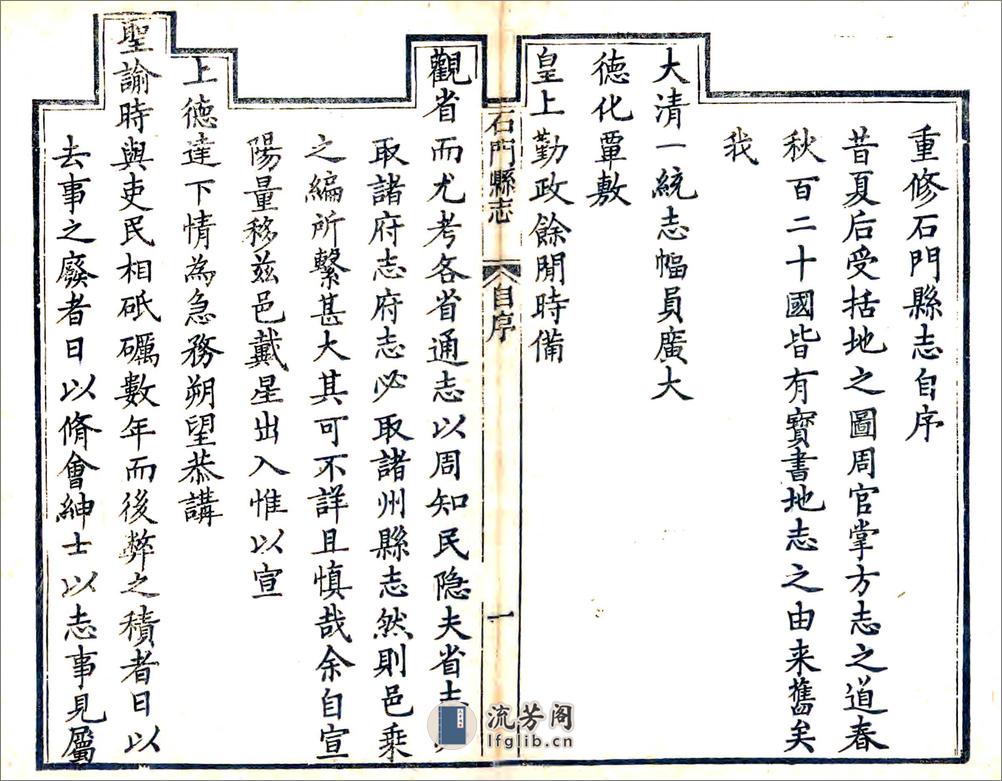 重修石門縣志自序
昔夏后受括地之圖周官掌方志之道春
秋百二十國皆有寶書地志之由来舊矣
我
大清一統志幅員廣大
德化覃敷
皇上勤政餘閒時備
石門縣志
自序
一
觀省而尤考各省通志以周知民隐夫省志
取諸府志府志必取諸州縣志然則邑乘
之編所繫甚大其可不詳且慎哉余自宣
陽量移茲邑戴星出入惟以宣
上德達下情為急務朔望恭講
聖諭時與吏民相砥礪數年而後弊之積者日以
去事之廢者日以脩會紳士以志事見屬
流芳阁
lfglib.cn